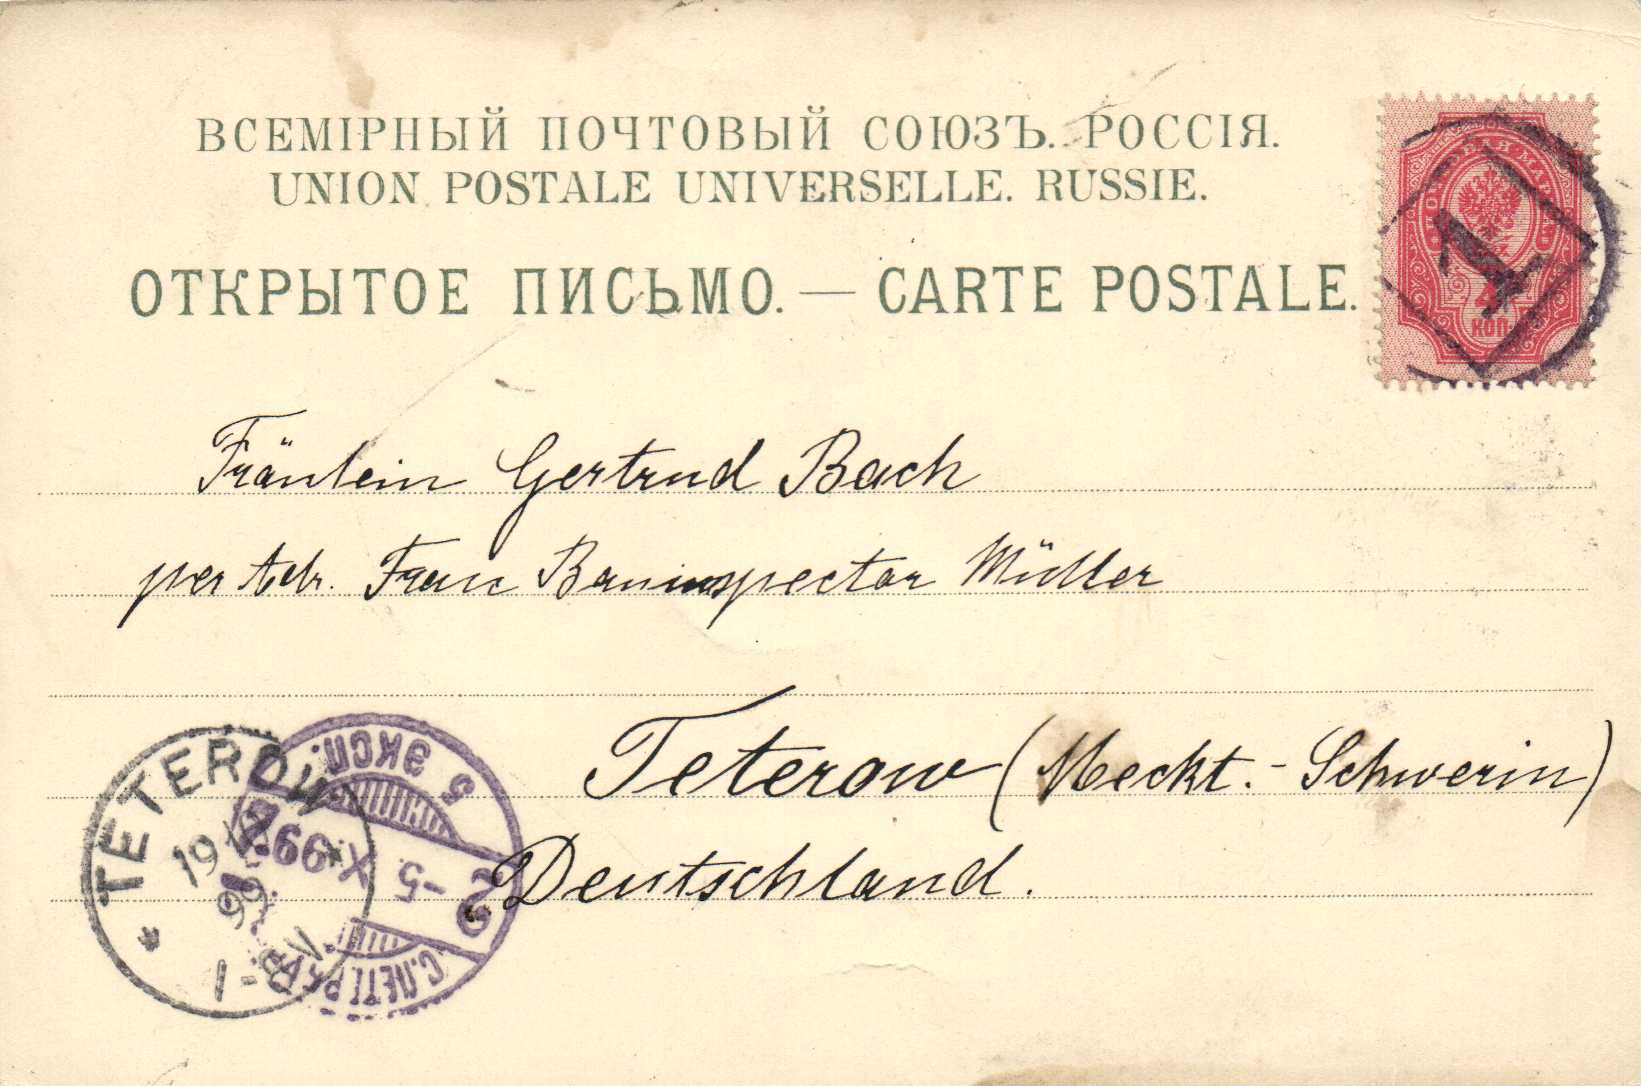 ВСЕМІРНЫЙ ПОЧТОВЫЙ СОЮЗЪ. РОССІЯ.
UNION POSTALE UNIVERSELLE. RUSSIE.
ОТКРЫТОЕ ПИСЬМО. — CARTE POSTALE.
1
КОП.
Fräulein Gertrud Bach
per Adr. Frau Bauinspector Müller
Teterow (Meckl.-Schwerin)
Deutschland.
TETEROW
19
99
5 ЭКСП.
X 99
С.ПЕТЕРБУРГ